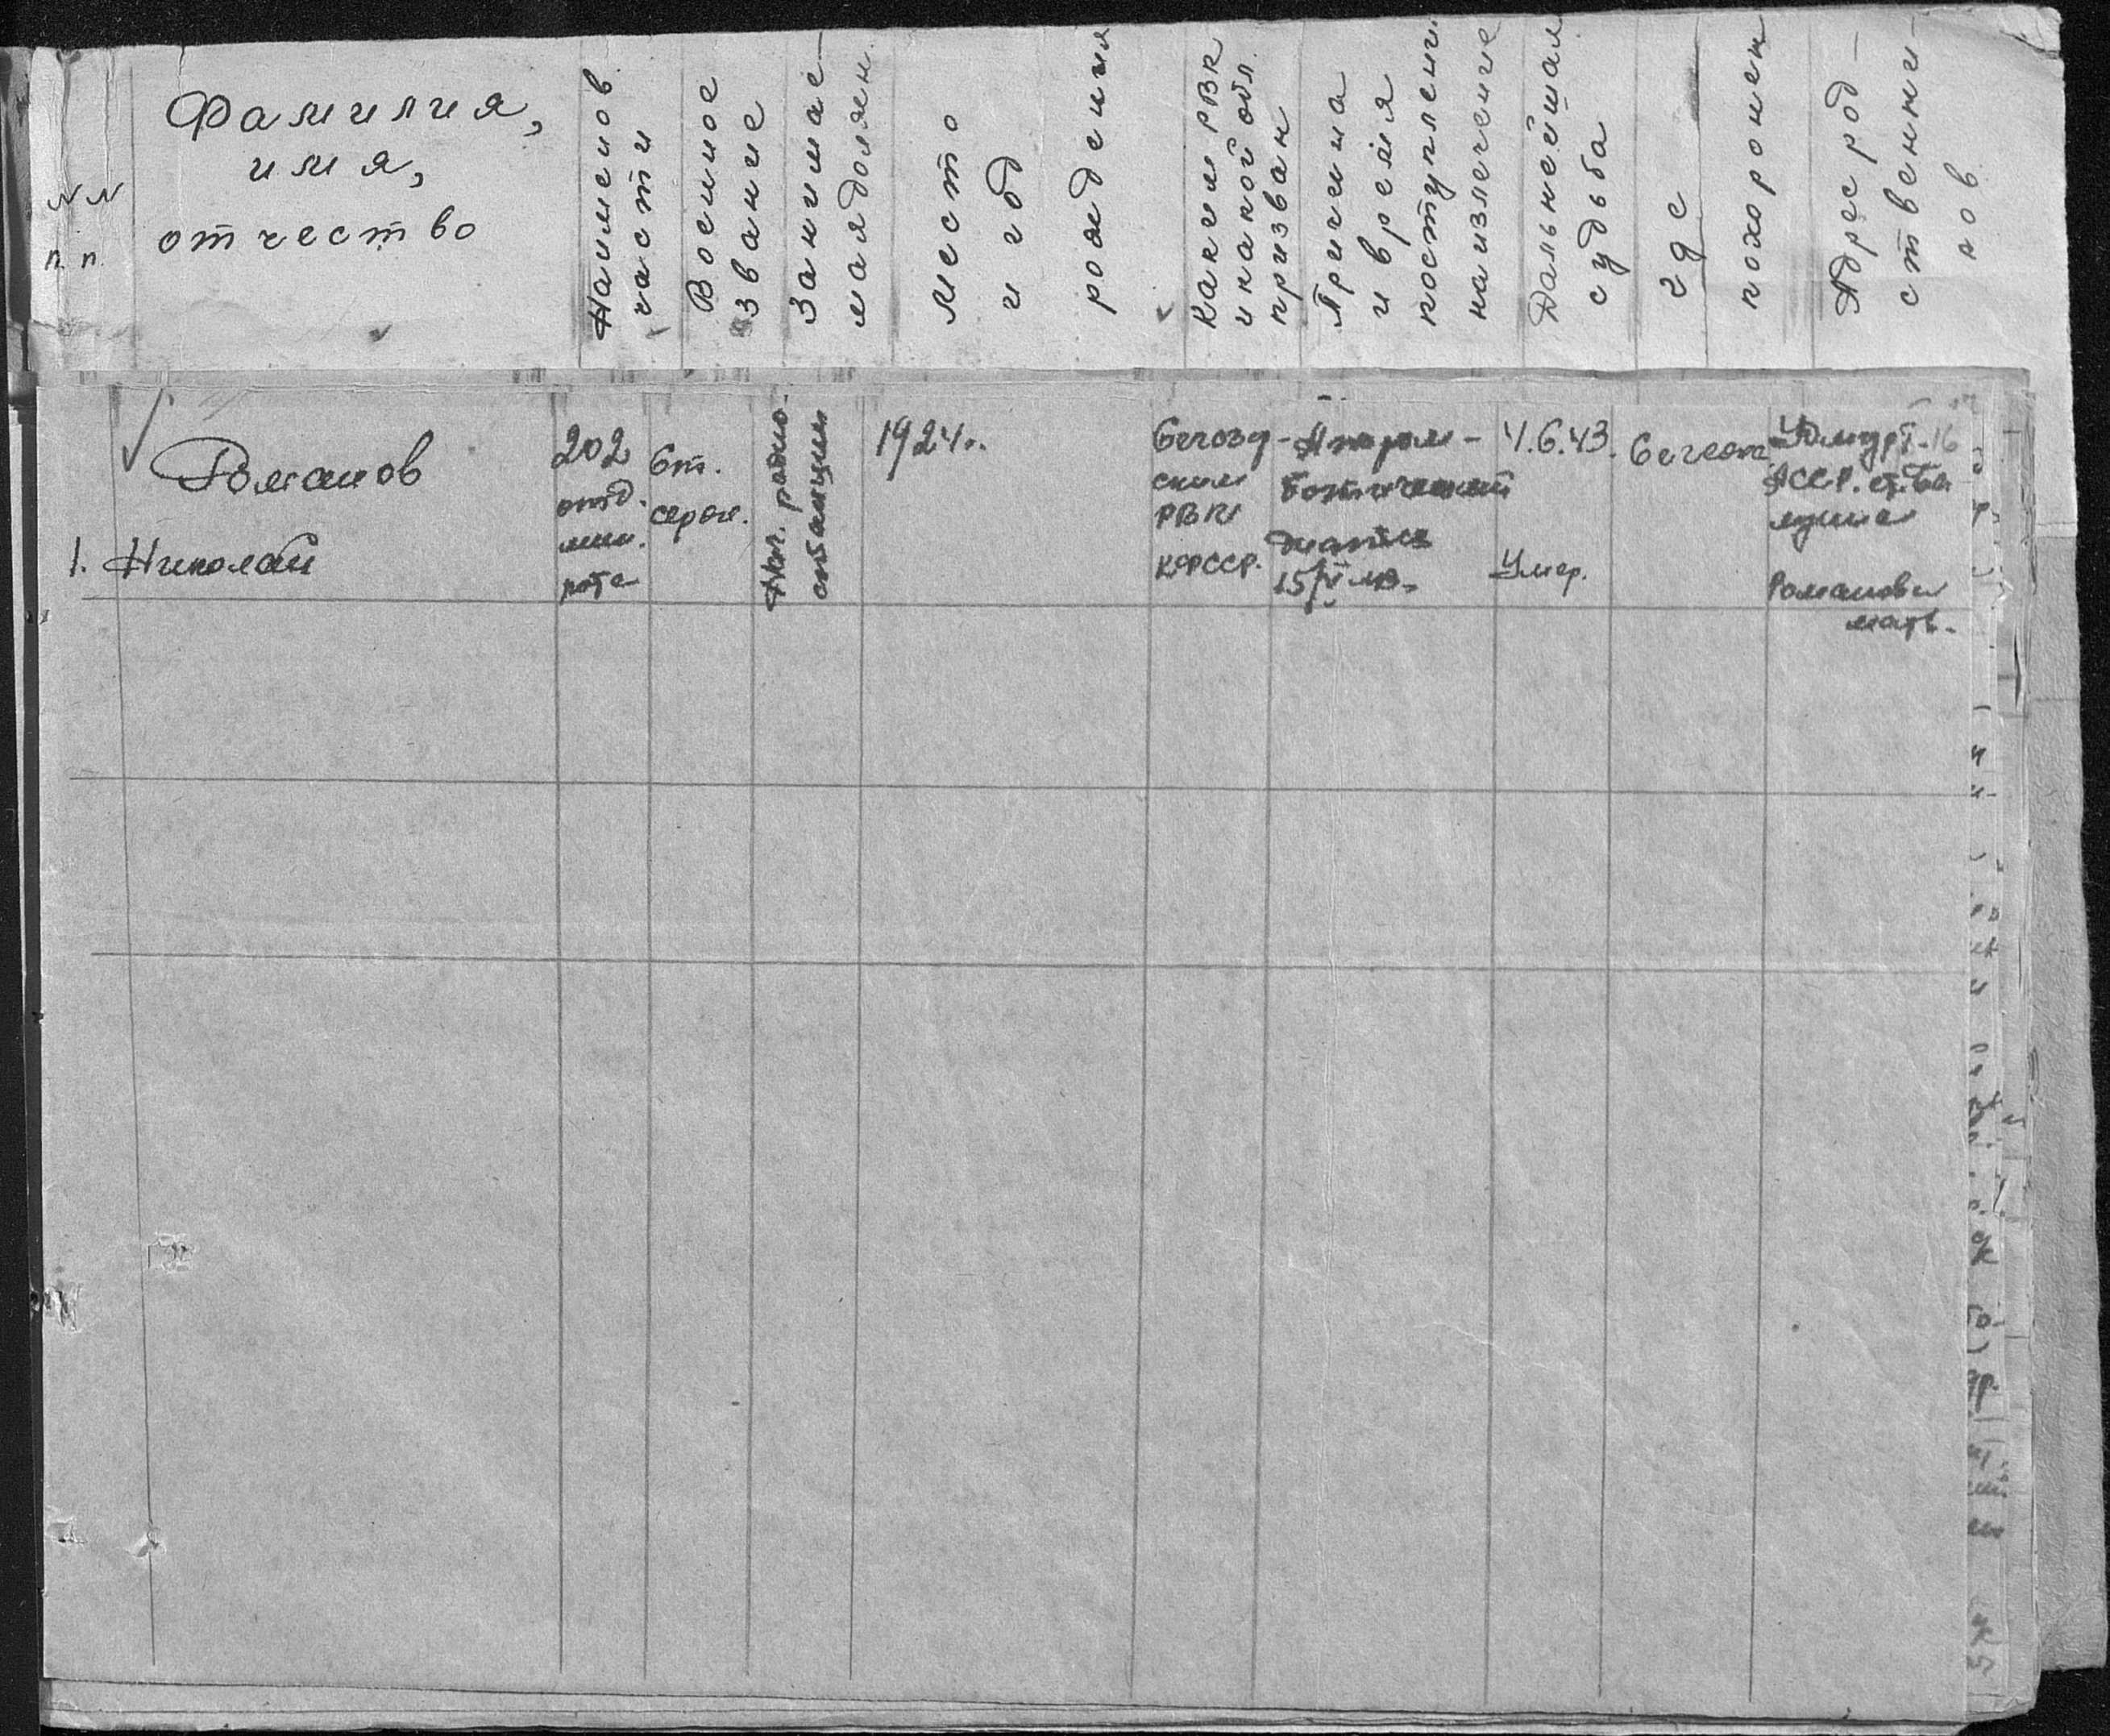 NN
п. п.
Фамилия,
имя,
отчество
Наименов
части
Военное
звание
Занимае-
мая должн.
Место
и год
рождения
Каким РВК
и какой обл.
призван
Причина
и время
поступлени
на излечение
Дальнейшая
судьба
где
похоронен
Адрес род-
ственни-
ков
1.
Романов
Николай
202
отд.
мин.
рота
Ст.
серж.
Нач. радио-
станции
1924 г.
Сегозд-
ским
РВК
КФССР.
15/V 43.
4.6.43.
Умер.
Удмурт.
АССР. ст. Ба
Романова
мать.